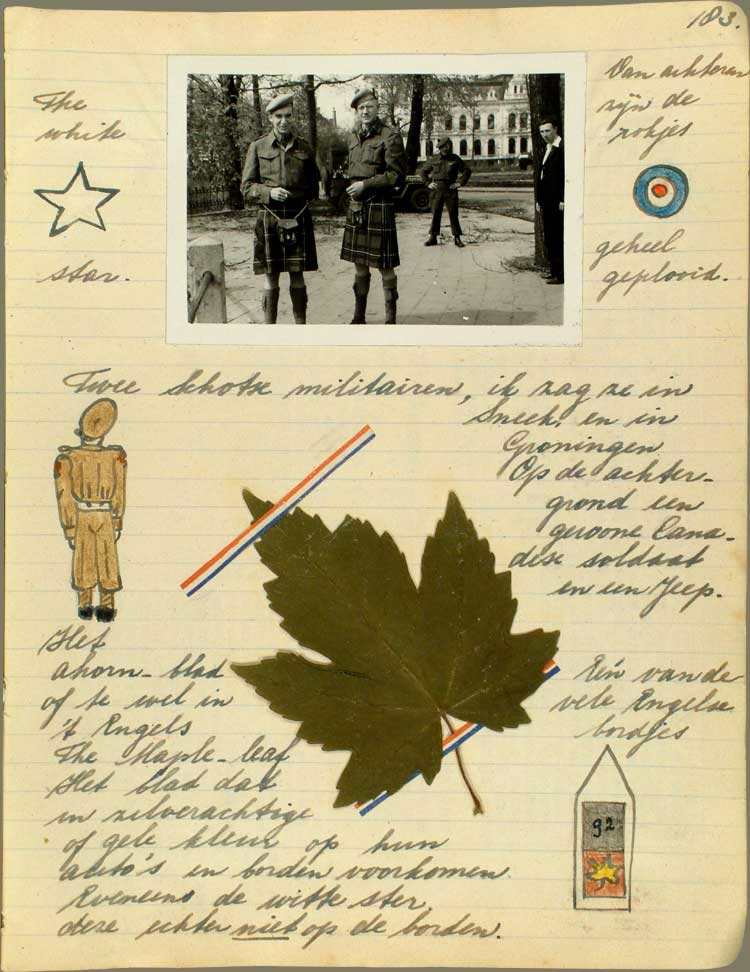 183.
The
white
star.
Van achteren
zijn de
rokjes
geheel
geplooid.
Twee Schotse militairen, ik zag ze in
Sneek, en in
Groningen
Op de achter-
grond een
gewone Cana-
dese soldaat
en een Jeep.
Het
ahorn-blad
of te wel in
't Engels
The Maple-leaf
Het blad dat
in zilverachtige
of gele kleur op hun
auto's en borden voorkomen.
Eveneens de witte ster,
deze echter niet op de borden.
Eén van de
vele Engelse
bordjes
92